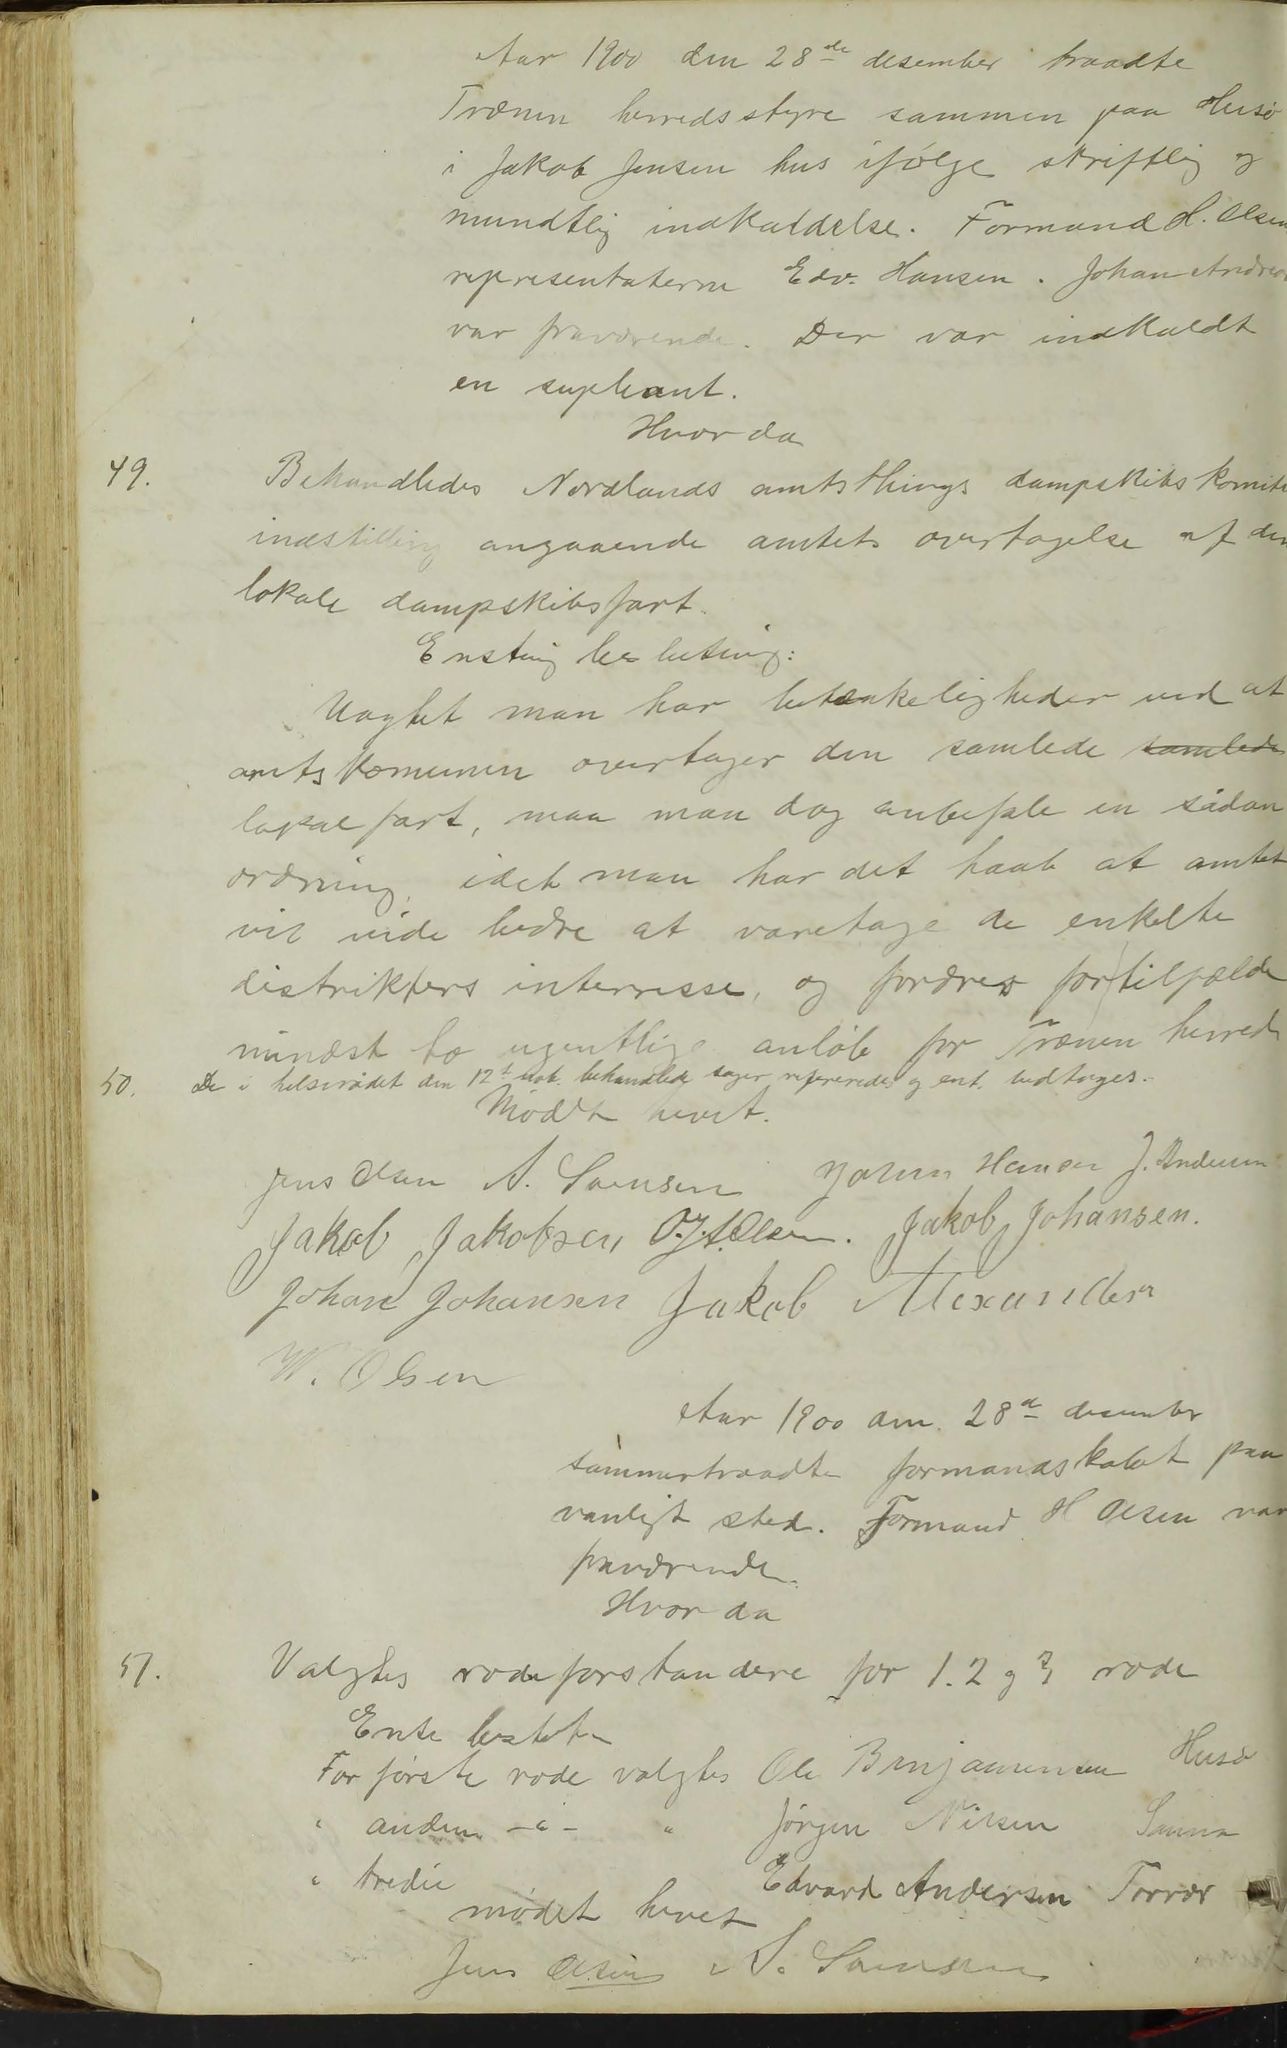 Aar 1900 den 28de desember traadte
Trænen herredsstyre sammen paa Husø
i Jakob Jensen hus ifølge skriftlig og
mundtlig indkaldelse. Formand H. Olsen
representaterne Edv. Hansen. Johan Andreas
var fraværende. Der var indkaldt
en supleant.
Hvor da
49. Behandledes Nordlands amtsthings dampskibskomite
indstilling angaaende amtets overtagelse af den
lokale dampskibsfart.
Enstmig beslutning:
Uagtet man har betænkeligheder ved at
amtskomunen overtager den samlede samlede
lokalfart, maa man dog anbefale en sådan
ordning, idet man har det haab at amtet
vil vide bedre at varetage de enkelte
distrikters interresse, og fordres for tilfælde
mindst to ugentlige anløb for Trænen herred
50. De i helserådet den 12te behandlede sager refereredes og ent. vedtoges.
Mødet hevet.
Jens Olsen A. Svensen Johan Hansen J. Andersen
Jakob Jakobsen O.J.A.Olsen. Jakob Johansen.
Johan Johansen Jakob Alexandersen
W. Olsen
Aar 1900 den 28de desember
sammentraadte formandskabet paa
vanligt sted. Formand H Olsen var
fraværende.
Hvor da
51. Valgtes rodeforstandere for 1. 2 og 3 rode
Enst. besluttet
For første rode valgtes Ole Benjaminsen Husø
" anden -"- " Jørgen Nilsen Sanna
" tredie Edvard Andersen Forvær
mødet hevet
Jens Olsen A. Svensen